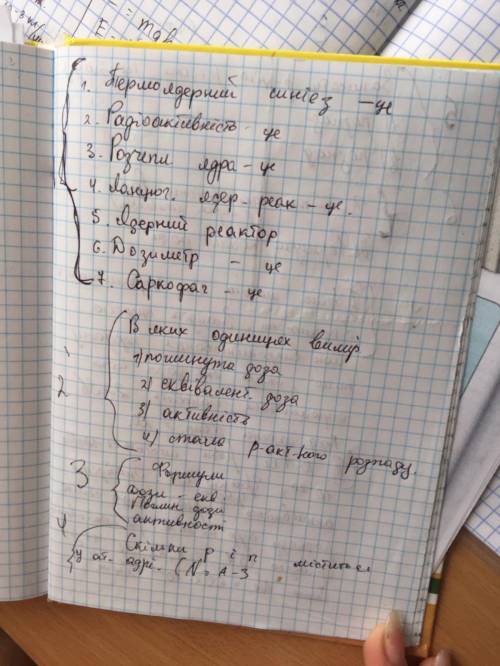 1. Термоядерний синтез – це
2. Радіоактивність – це
3. Розчепл ядра – це
4. Ланцюг. ядер – реак – це.
5. Ядерний реактор
6. Дозиметр – це
7. Саркофаг – це
2
В яких одиницях вимір
1) поглинута доза
2) еквівалент. доза
3) активність
4) стала р-акт-ного розпаду.
3
Формули
дози – екв.
Поглин. дози
активності
4
Скільки p і n міститься
у ат. ядрі. (N = A – Z